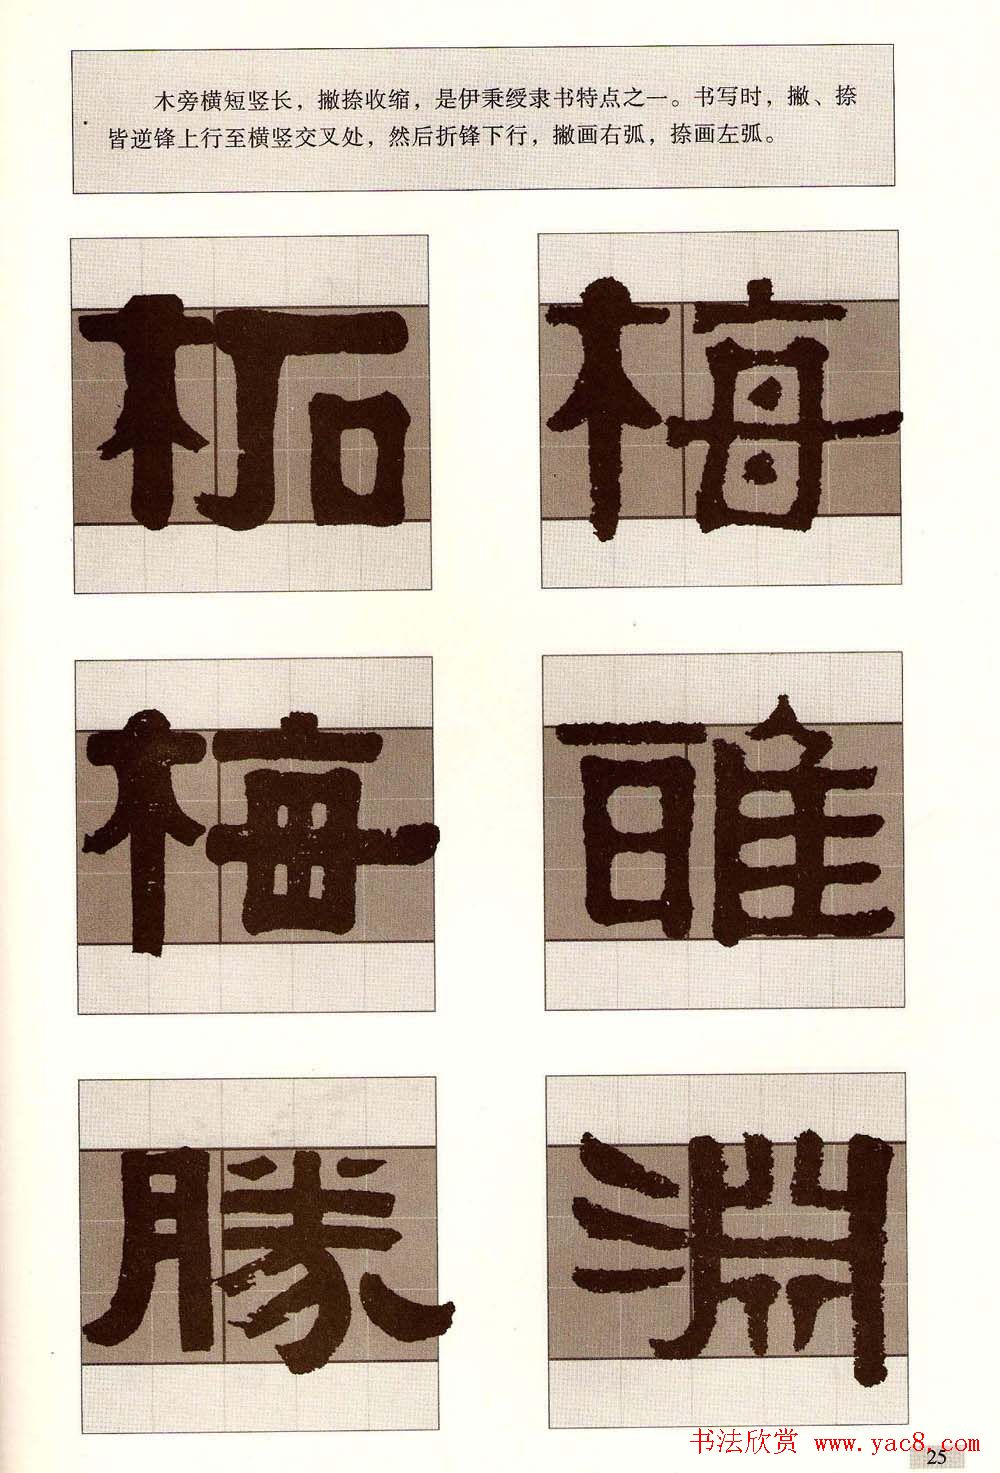 木旁横短竖长，撇捺收缩，是伊秉绶隶书特点之一。书写时，撇、捺
皆逆锋上行至横竖交叉处，然后折锋下行，撇画右弧，捺画左弧。
柘 梅
梅
勝 淵
书法欣赏 www.yac8.com
25